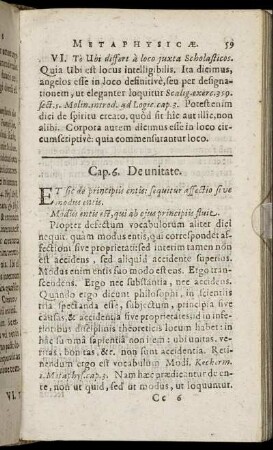 METAPHYSICÆ. 59
VI. Tò Ubi differt à loco juxta Scholasticos.
Quia Ubi est locus intelligibilis. Ita dicimus,
angelos esse in loco definitivè, seu per designa-
tionem, ut eleganter loquitur Scalig. exerc. 359.
sect. 3. Molin. introd. ad Logic. cap. 3. Potest enim
dici de spiritu creato, quòd sit hîc aut illîc, non
alibi. Corpora autem dicimus esse in loco cir-
cumscriptivè: quia commensurantur loco.
Cap. 6. De unitate.
ET sic de principiis entis: sequitur affectio sive
modus entis.
Modus entis est, qui ab ejus principiis fluit.
Propter defectum vocabulorum aliter dici
nequit quàm modus entis, qui correspondet af-
fectioni sive proprietati: sed interim tamen non
est accidens, sed aliquid accidente superius.
Modus enim entis suo modo est ens. Ergo tran-
scendens. Ergo nec substantia, nec accidens.
Quando ergo dicunt philosophi, in scientia
ritia spectanda est, subjectum, principia sive
causas, & accidentia sive proprietates: id in infe-
rioribus disciplinis theoreticis locum habet: in
hac summa sapientia non item: ubi unitas, ve-
ritas, bonitas, &c. non sunt accidentia. Reti-
nendum ergo est vocabulum Modi. Keckerm.
1. Metaphys. cap. 3. Nam hæc prædicantur de en-
te, non ut quid, sed ut modus, ut loquuntur.
Cc 6
VI. T